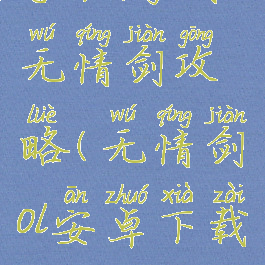 wú qíng jiàn gōng
无情剑攻
lüè wú qíng jiàn
略(无情剑
ān zhuó xià zài
ol安卓下载